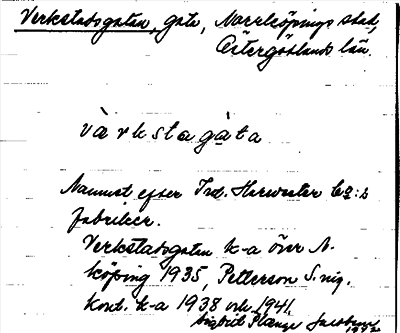 Verkstadsgatan, gata, Norrköpings stad,
Östergötlands län.
vàrkstagàta
Namnet efter Ind. Harwester Co:s
fabriker.
Verkstadsgatan k-a över N-
köping 1935, Petterson S. nig.
kont. k-a 1938 och 1941.
Sigbrit Plænge Jacobson